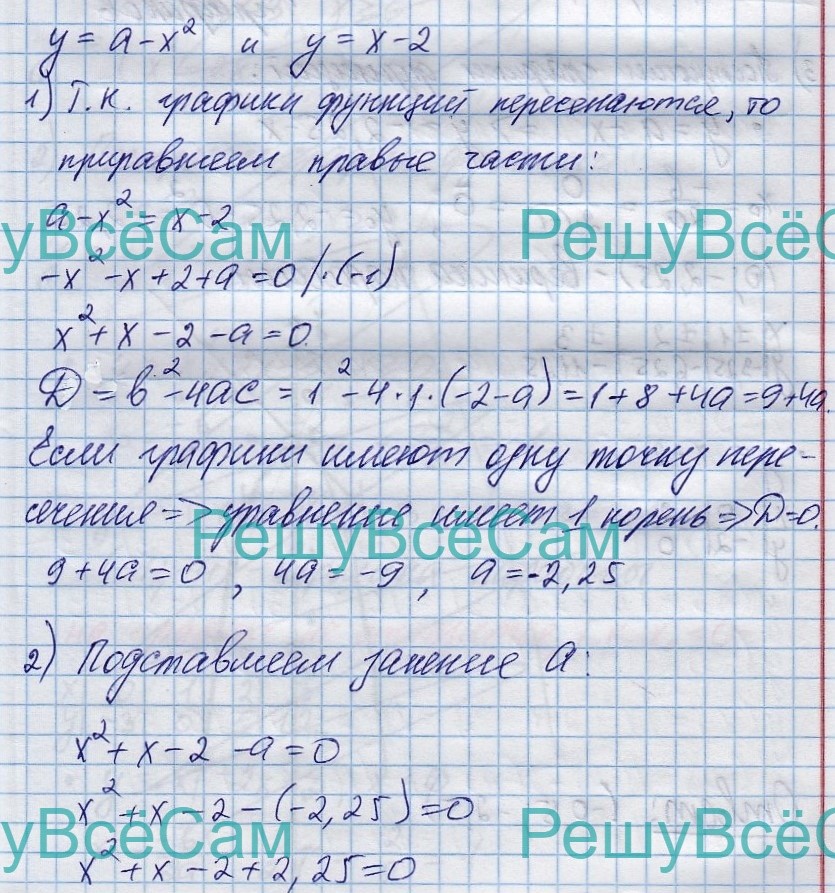 y = a - x² и y = x - 2
1) Т.к. графики функций пересекаются, то
приравняем правые части:
a - x² = x - 2
-x² - x + 2 + a = 0 /·(-1)
x² + x - 2 - a = 0
D = в² - 4ac = 1² - 4·1·(-2-a) = 1 + 8 + 4a = 9 + 4a.
Если графики имеют одну точку пере-
сечения => уравнение имеет 1 корень => D = 0.
9 + 4a = 0, 4a = -9, a = -2,25
2) Подставляем зачение a:
x² + x - 2 - a = 0
x² + x - 2 - (-2,25) = 0
x² + x - 2 + 2,25 = 0
уВсёСам
РешуВсёС
РешуВсёСам
уВсёСам
РешуВсёС